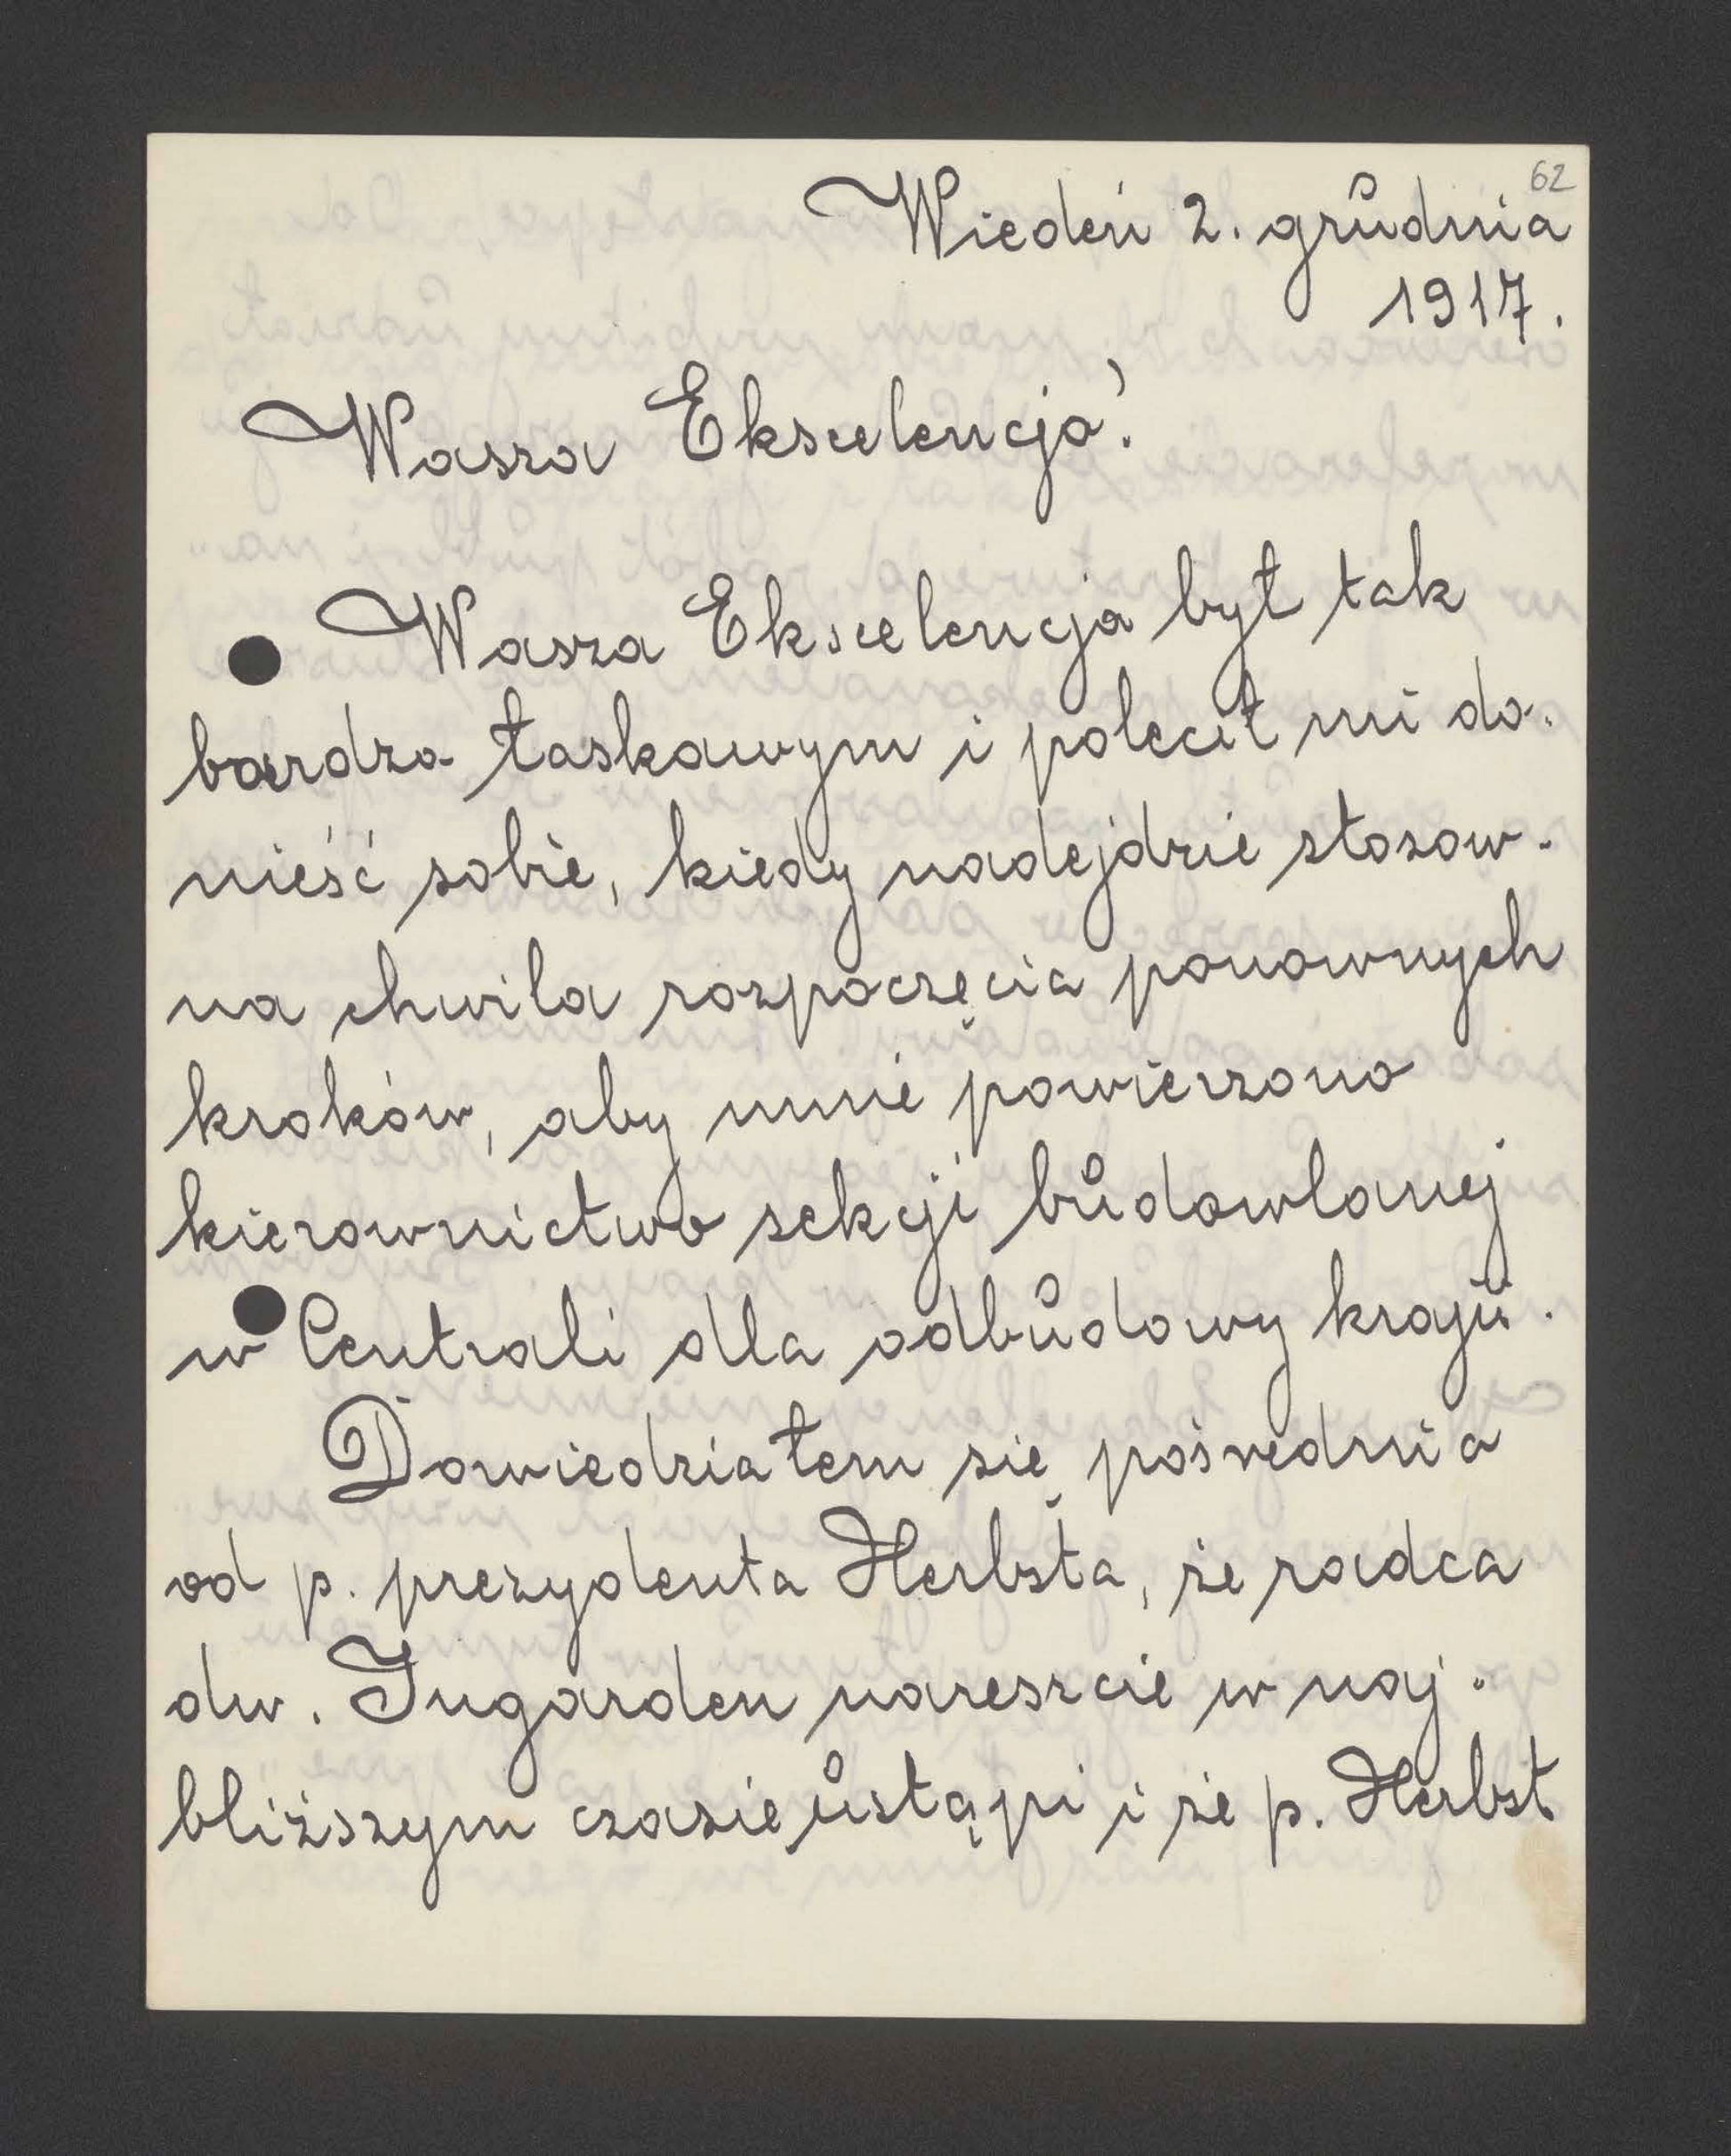 62
Wiedeń 2. grudnia
1917.
Wasza Ekscelencjo!
Wasza Ekscelencja był tak
bardzo łaskawym i polecił mi do-
nieść sobie, kiedy nadejdzie stosow-
na chwila rozpoczęcia ponownych
kroków, aby mnie powierzono
kierownictwo sekcji budowlanej
w Centrali dla odbudowy kraju.
Dowiedziałem się pośrednio
od p. prezydenta Herbsta, że radca
dw. Ingarden nareszcie w naj-
bliższym czasie ustąpi i że p. Herbst